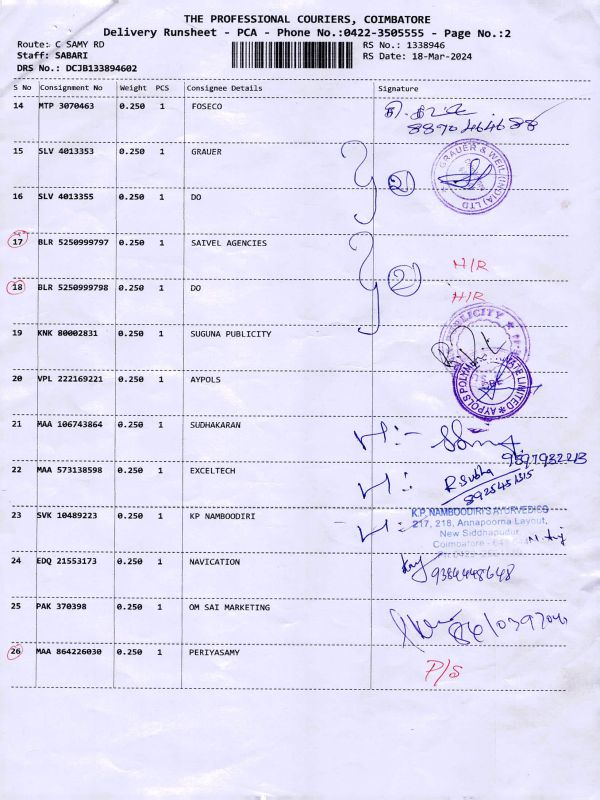 THE PROFESSIONAL COURIERS, COIMBATORE
Delivery Runsheet - PCA - Phone No.:0422-3505555 - Page No.:2
Route: C SAMY RD RS No.: 1338946
Staff: SABARI RS Date: 18-Mar-2024
DRS No.: DCJB133894602
S No Consignment No Weight PCS Consignee Details Signature
14 MTP 3070463 0.250 1 FOSECO
8890464688
15 SLV 4013353 0.250 1 GRAUER
GRAUER & WEIL (INDIA) LTD
2
16 SLV 4013355 0.250 1 DO
17 BLR 5250999797 0.250 1 SAIVEL AGENCIES
H/R
2
18 BLR 5250999798 0.250 1 DO
H/R
19 KNK 80002831 0.250 1 SUGUNA PUBLICITY
20 VPL 222169221 0.250 1 AYPOLS
21 MAA 106743864 0.250 1 SUDHAKARAN
22 MAA 573138598 0.250 1 EXCELTECH
R. Subha
8925451315
23 SVK 10489223 0.250 1 KP NAMBOODIRI
K.P. NAMBOODIRI'S AYURVEDICS
217, 218, Annapoorna Layout,
New Siddhapudur,
Coimbatore
24 EDQ 21553173 0.250 1 NAVICATION
9384448648
25 PAK 370398 0.250 1 OM SAI MARKETING
26 MAA 864226030 0.250 1 PERIYASAMY
P/S